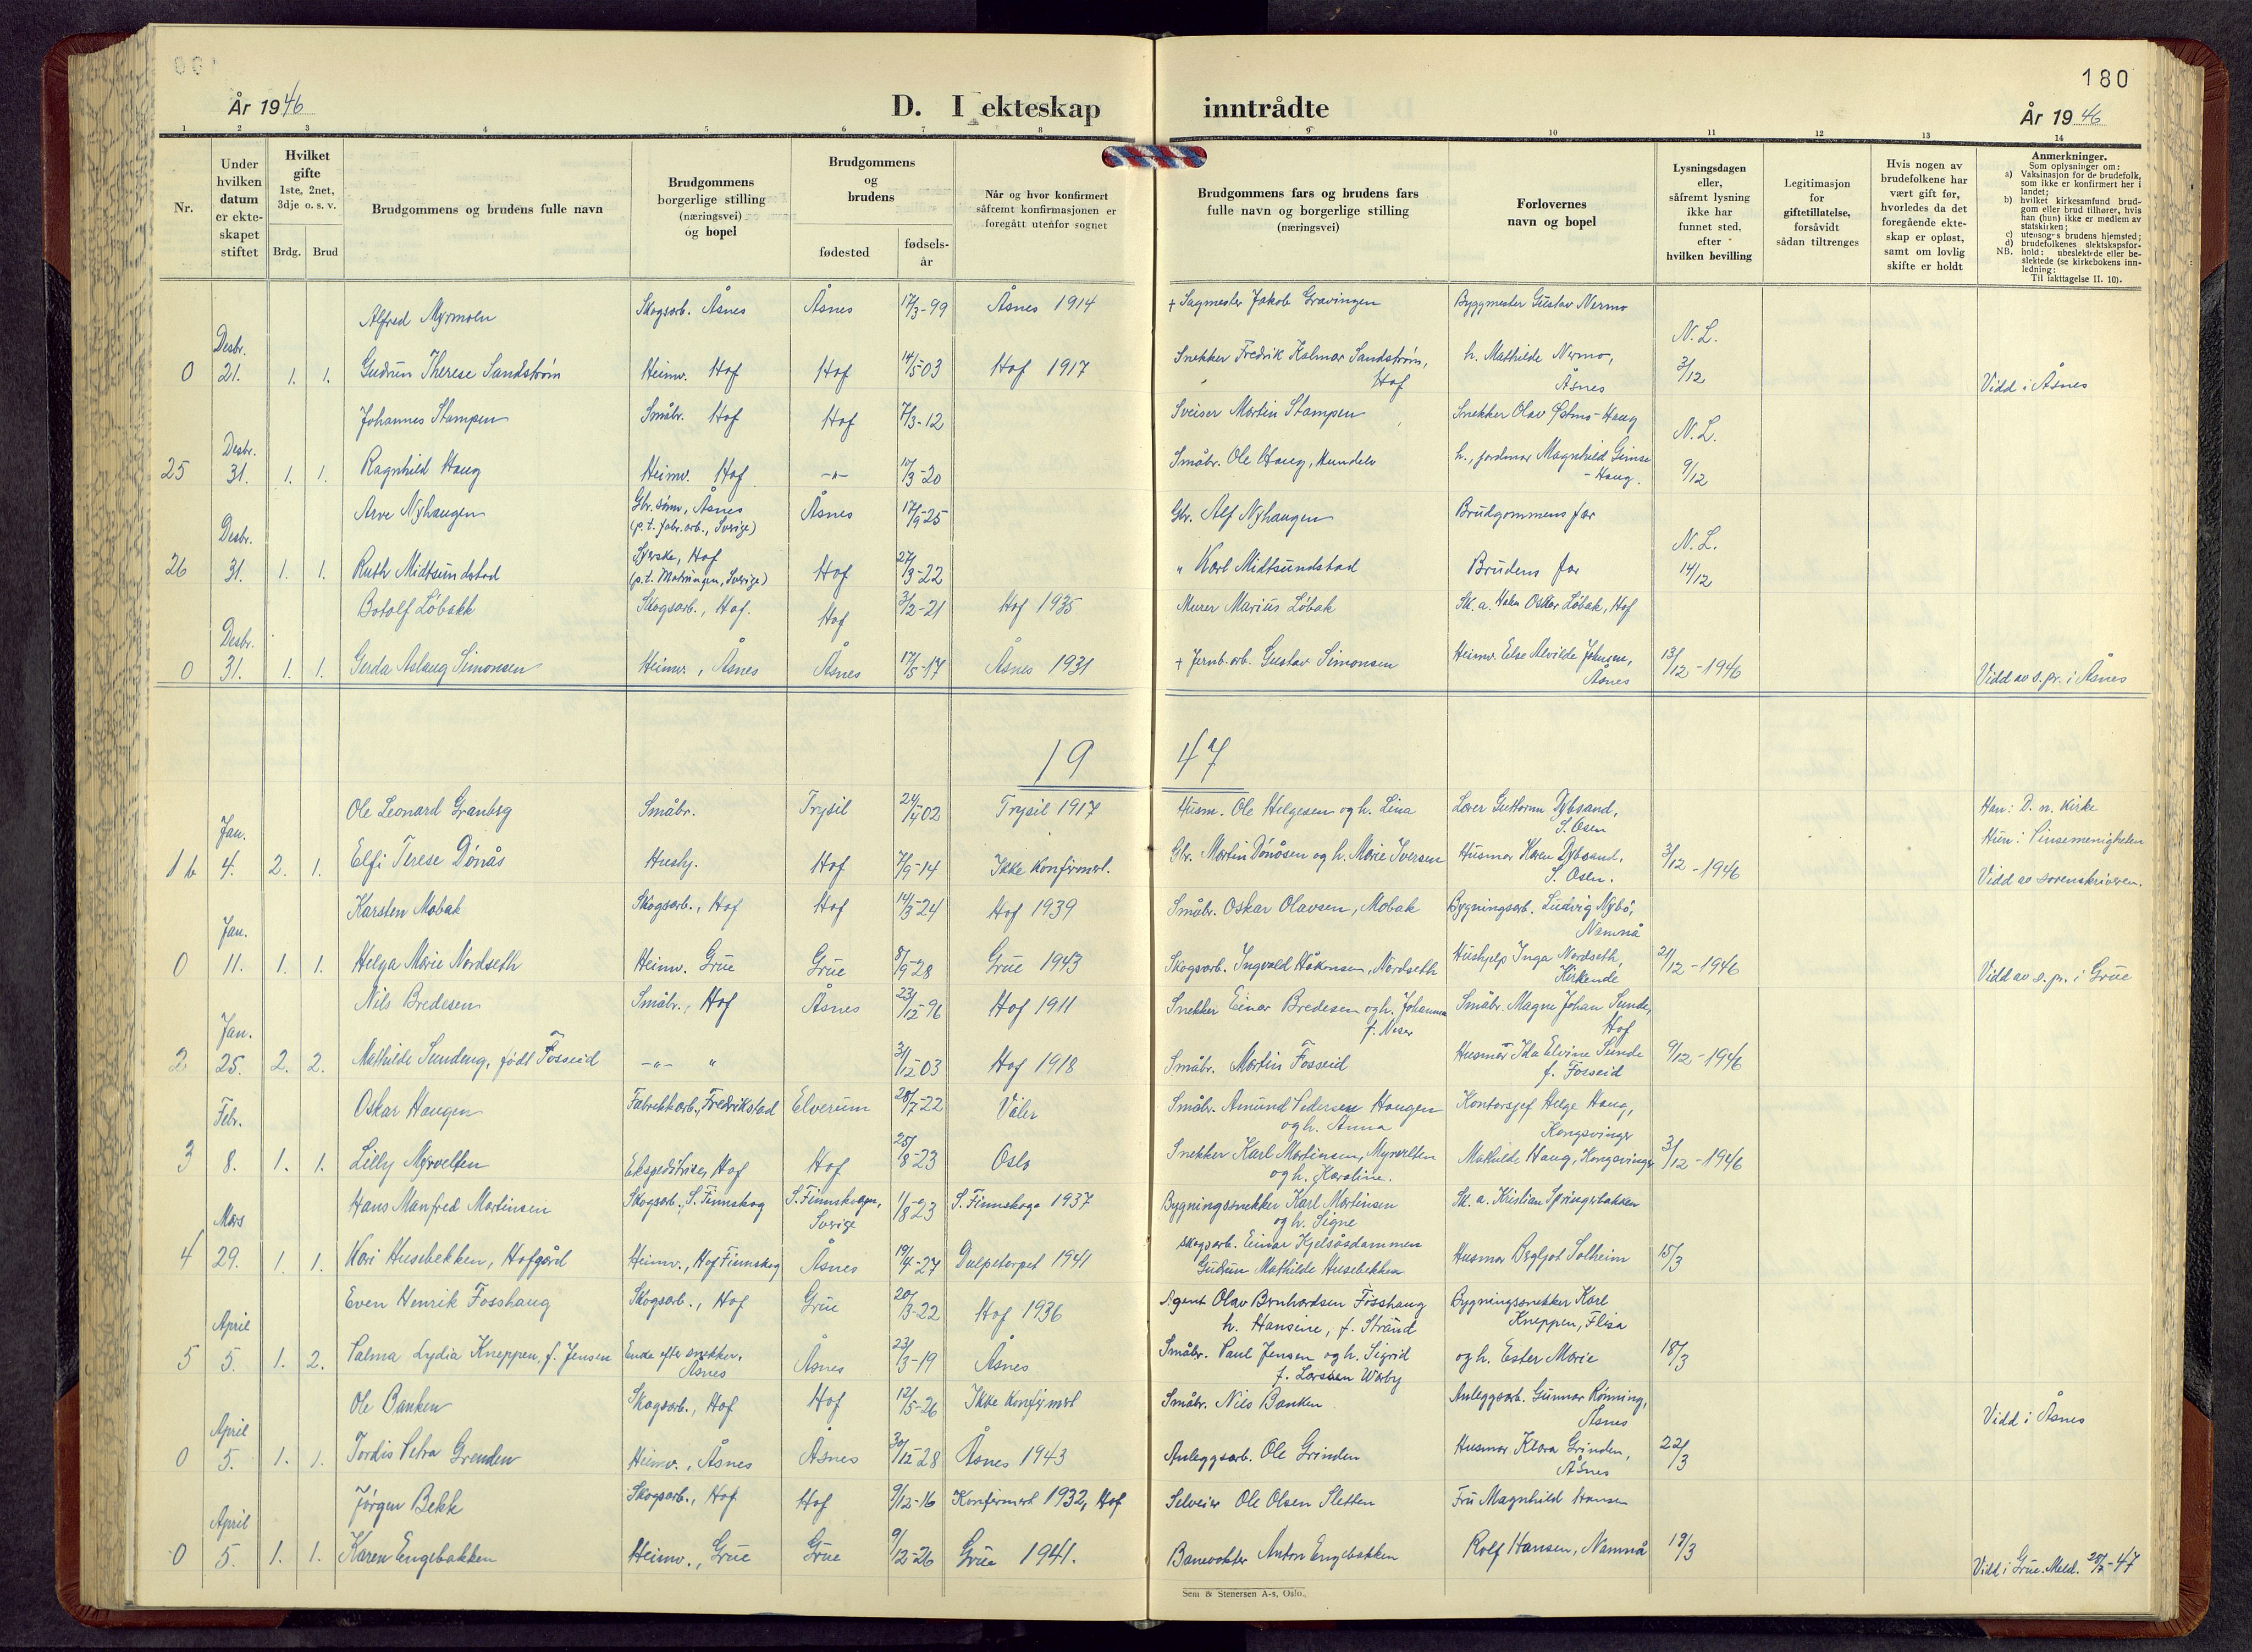 180
År 1946
D. I ekteskap
inntrådte
År 1946
1 2 3 4 5 6 7 8 9 10 11 12 13 14
Nr.
Under hvilken datum er ekteskapet stiftet
Hvilket gifte 1ste, 2net, 3dje o. s. v.
Brdg. Brud
Brudgommens og brudens fulle navn
Brudgommens borgerlige stilling (næringsvei) og bopel
Brudgommens og brudens
fødested
fødsels-år
Når og hvor konfirmert såfremt konfirmasjonen er foregått utenfor sognet
Brudgommens fars og brudens fars fulle navn og borgerlige stilling (næringsvei)
Forlovernes navn og bopel
Lysningsdagen eller, såfremt lysning ikke har funnet sted, efter hvilken bevilling
Legitimasjon for giftetillatelse, forsåvidt sådan tiltrenges
Hvis nogen av brudefolkene har vært gift før, hvorledes da det foregående ekteskap er opløst, samt om lovlig skifte er holdt
Anmerkninger.
Som oplysninger om:
a) Vaksinasjon for de brudefolk, som ikke er konfirmert her i landet;
b) hvilket kirkesamfund brudgom eller brud tilhører, hvis han (hun) ikke er medlem av statskirken;
c) utensogns brudens hjemsted;
d) brudefolkenes slektskapsforhold: ubeslektede eller beslektede (se kirkebokens innledning:
NB.
Til iakttagelse II. 10).
Alfred Myrmoen Skogsarb. Åsnes Åsnes 17/3-99 Åsnes 1914 + Sagmester Jakob Gravingen Byggmester Gustav Nermo
0 Desbr. 21. 1. 1. Gudrun Therese Sandstrøm Heimv. Hof Hof 14/5-03 Hof 1917 Snekker Fredrik Kalmar Sandstrøm, Hof h. Mathilde Nermo, Åsnes N.L. 3/12 Vidd i Åsnes
Johannes Stampen Småbr. Hof Hof 7/3-12 Sveiser Martin Stampen Snekker Olav Østmo-Haug
25 Desbr. 31. 1. 1. Ragnhild Haug Heimv. Hof -"- 10/3-20 Småbr. Ole Haug, Hundelv h., jordmor Magnhild Gimse-Haug. N.L. 9/12
Arve Nyhaugen Gbr.sønn, Åsnes (p.t. fabr.arb., Sverige) Åsnes 17/9-25 Gbr. Alf Nyhaugen Brudgommens far
26 Desbr. 31. 1. 1. Ruth Midtsundstad Syerske, Hof (p.t. Malungen, Sverige) Hof 27/3-22 " Karl Midtsundstad Brudens far N.L. 14/12
Botolf Løbakk Skogsarb., Hof. Hof 3/2-21 Hof 1935 Murer Marius Løbak Sk.a. Oskar Løbak, Hof
0 Desbr. 31. 1. 1. Gerda Aslaug Simonsen Heimv., Åsnes Åsnes 17/5-17 Åsnes 1931 + Jernb.arb. Gustav Simonsen Heimv. Else Alvilde Johnsen, Åsnes 13/12-1946 Vidd av s.pr. i Åsnes
19 47
Ole Leonard Granberg Småbr. Trysil 24/4-02 Trysil 1917 Husm. Ole Helgesen og h. Lina Lærer Guttorm Dybsand, S. Osen Han: D. n. kirke
1 b Jan. 4. 2. 1. Elfi Terese Dönås Hushj. Hof 7/9-14 Ikke konfirmert. Gbr. Martin Dönåsen og h. Marie Iversen Husmor Karen Dybsand, S. Osen. 3/12-1946 Hun: Pinsemenigheten Vidd av sorenskriveren.
Karsten Mobak Skogsarb., Hof Hof 14/3-24 Hof 1939 Småbr. Oskar Olavsen, Mobak Bygningsarb. Ludvig Nybö, Namnå
0 Jan. 11. 1. 1. Helga Marie Nordseth Heimv. Grue Grue 8/9-28 Grue 1943 Skogsarb. Ingvald Håkonsen, Nordseth Hushjelp Inga Nordseth, Kirkende 21/12-1946 Vidd av s.pr. i Grue
Nils Bredesen Småbr., Hof Åsnes 23/12-96 Hof 1911 Snekker Einar Bredesen og h. Johanna f. Neser Småbr. Magne Johan Sunde, Hof
2 Jan. 25. 2. 2. Mathilde Sundeng, født Fosseid -"- " 31/12-03 Hof 1918 Småbr. Martin Fosseid Husmor Ida Elvine Sunde f. Fosseid 9/12-1946
Oskar Haugen Fabrikkarb., Fredrikstad Elverum 28/7-22 Våler Småbr. Amund Pedersen Haugen og h. Anna Kontorsjef Helge Haug, Kongsvinger
3 Febr. 8. 1. 1. Lilly Myrvelten Ekspeditrise, Hof Hof 25/8-23 Oslo Snekker Karl Martinsen, Myrvelten og h. Karoline. Mathilde Haug, Kongsvinger 31/12-1946
Hans Manfred Martinsen Skogsarb., S. Finnskog S. Finnskogen, Sverige 11/8-23 S. Finnskoga 1937 Bygningssnekker Karl Martinsen og h. Signe Sk. a. Kristian Springerbakken
4 Mars 29. 1. 1. Kari Husebekken, Hofgård Heimv., Hof Finnskog Åsnes 19/4-27 Dulpetorpet 1941 Skogsarb. Einar Kjelsåsdammen Gudrun Mathilde Husebekken Husmor Bergljot Solheim 15/3
Even Henrik Fosshaug Skogsarb., Hof Grue 20/3-22 Hof 1936 Agent Olav Bernhardsen Fosshaug h. Hansine, f. Strand Bygningssnekker Karl Kneppen, Flisa
5 April 5. 1. 2. Palma Lydia Kneppen, f. Jensen Enke efter snekker, Åsnes Åsnes 23/3-19 Åsnes Småbr. Paul Jensen og h. Sigrid f. Larssen Wårby og h. Ester Marie 18/3
Ole Banken Skogsarb., Hof Hof 12/5-26 Ikke konfirmert Småbr. Nils Banken Anleggsarb. Gunnar Rønning, Åsnes Vidd i Åsnes
0 April 5. 1. 1. Tordis Petra Grenden Heimv., Åsnes Åsnes 30/12-28 Åsnes 1943 Anleggsarb. Ole Grinden Husmor Klara Grinden, Åsnes 22/3
Jørgen Bekk Skogsarb., Hof Hof 9/12-16 Konfirmert 1932, Hof Selveier Ole Olsen Sletten Fru Magnhild Hansen
0 April 5. 1. 1. Karen Engebakken Heimv., Grue Grue 9/12-26 Grue 1941. Banevokter Anton Engebakken Rolf Hansen, Namnå 19/3 Vidd i Grue. Meld. 28/7-47
Sem & Stenersen A-s, Oslo.